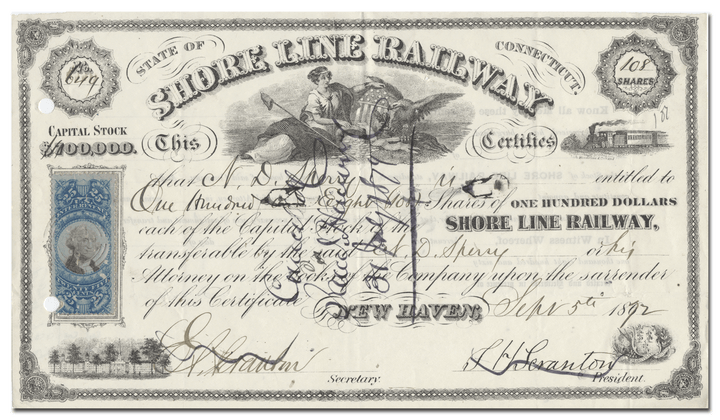 STATE OF CONNECTICUT.
SHORE LINE RAILWAY
No. 649
108
SHARES
CAPITAL STOCK
$1,100,000.
This Certifies
that N. D. Sperry is entitled to
One Hundred and Eight Shares of ONE HUNDRED DOLLARS
each of the Capital Stock of the SHORE LINE RAILWAY,
transferable by the said N. D. Sperry or his
Attorney on the Books of the Company upon the surrender
of this Certificate
NEW HAVEN, Sept 5th 1872
Scranton
Secretary.
Scranton
President.
25